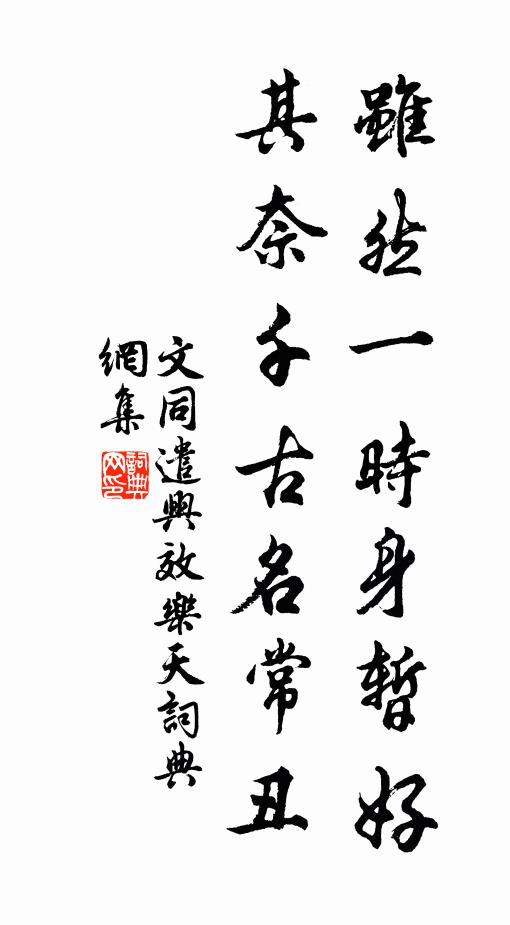 雖然一時身暫好
其奈千古名常丑
文同遣興效樂天詞典
網集
詞典網印